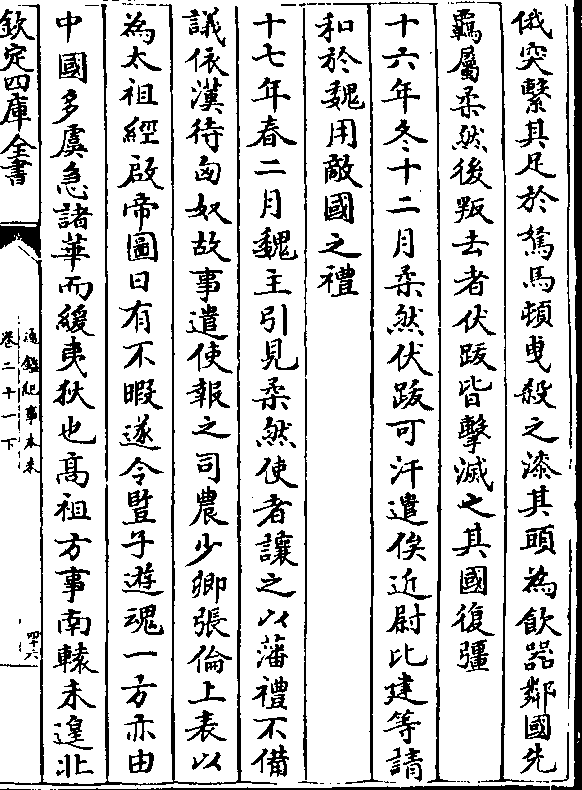 俄突繫其足於駑馬頓曳殺之漆其頭為飲器鄰國先
羈屬柔然後叛去者伏跋皆擊滅之其國復彊
十六年冬十二月柔然伏跋可汗遣俟近尉比建等請
和於魏用敵國之禮
十七年春二月魏主引見柔然使者讓之以藩禮不備
議依漢待匈奴故事遣使報之司農少卿張倫上表以
為太祖經啟帝圖日有不暇遂令豎子遊魂一方亦由
中國多虞急諸華而緩夷狄也高祖方事南轅未遑北
欽定四庫全書
通鑑紀事本末
卷二十一下
四十六